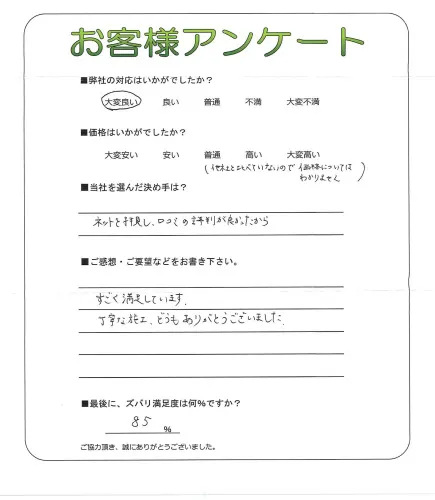 お客様アンケート
■弊社の対応はいかがでしたか?
大変良い 良い 普通 不満 大変不満
■価格はいかがでしたか?
大変安い 安い 普通 高い 大変高い
(他社と比べていないので価格については
わかりません)
■当社を選んだ決め手は?
ネットを拝見し、口コミの評判が良かったから
■ご感想・ご要望などをお書き下さい。
すごく満足しています。
丁寧な施工、どうもありがとうございました。
■最後に、ズバリ満足度は何%ですか?
85 %
ご協力頂き、誠にありがとうございました。